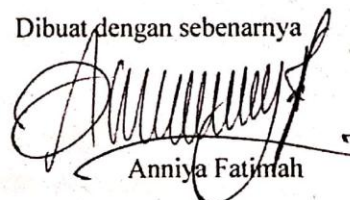 Dibuat dengan sebenarnya
Anniya Fatimah